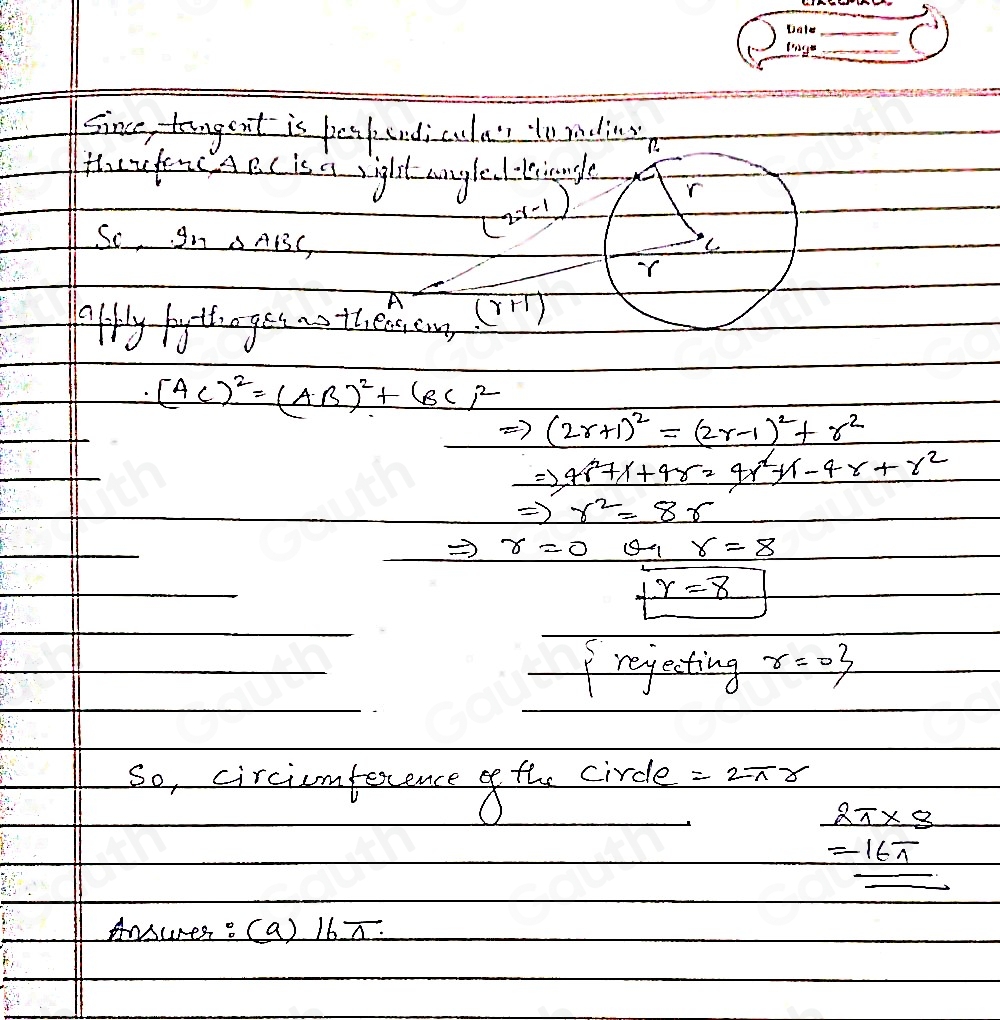 Date
Page
Since, tangent is perpendicular to radius
therefore, ABC is a right angled triangle
B
r
(2r-1)
So, In △ABC,
C
r
A
(r+1)
apply pythogeras theorem,
(AC)² = (AB)² + (BC)²
⇒ (2r+1)² = (2r-1)² + r²
⇒ 4r²+1+4r = 4r²+1-4r+r²
⇒ r² = 8r
⇒ r=0 or r=8
r=8
{rejecting r=0}
So, circiumference of the circle = 2πr
2π×8
=16π
Answer: (a) 16π.